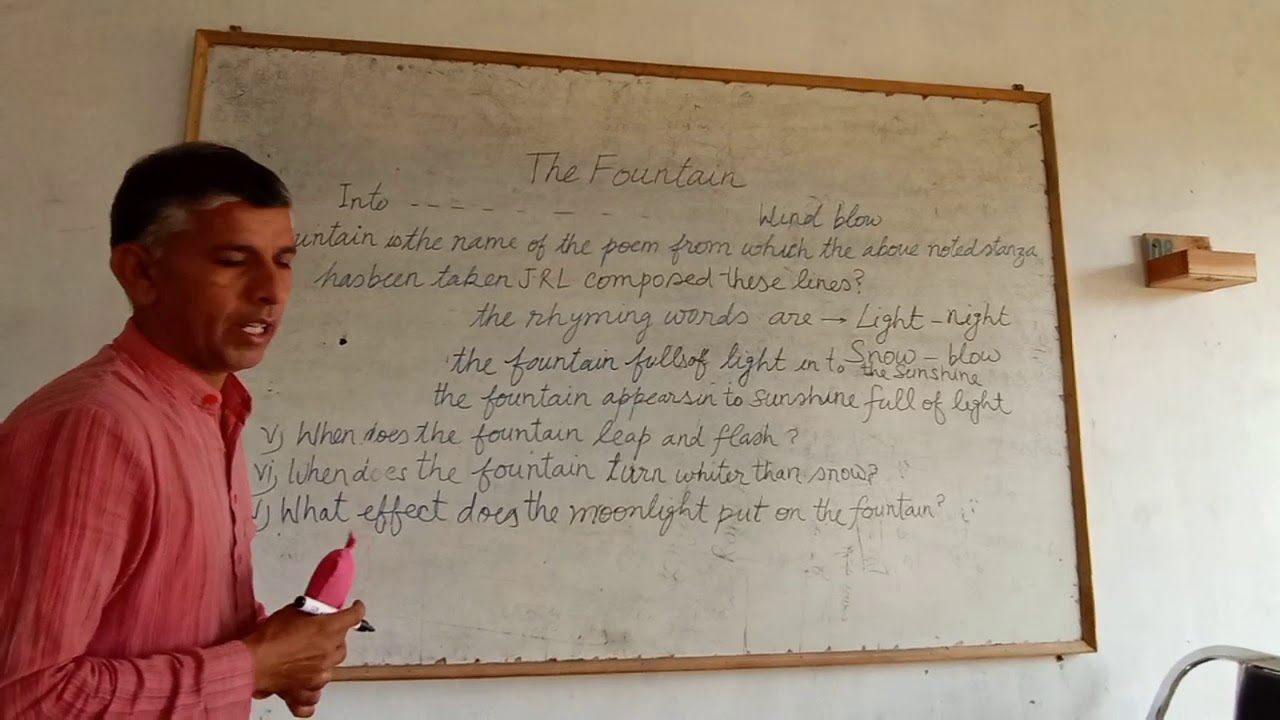 The Fountain
Into - - - - - - - - Wind blow
untain is the name of the poem from which the above noted stanza
has been taken J.R.L composed these lines?
the rhyming words are → Light - night
Snow - blow
the fountain fulls of light in to the sunshine
the fountain appears in to sunshine full of light
v) When does the fountain leap and flash?
vi) When does the fountain turn whiter than snow?
) What effect does the moonlight put on the fountain?